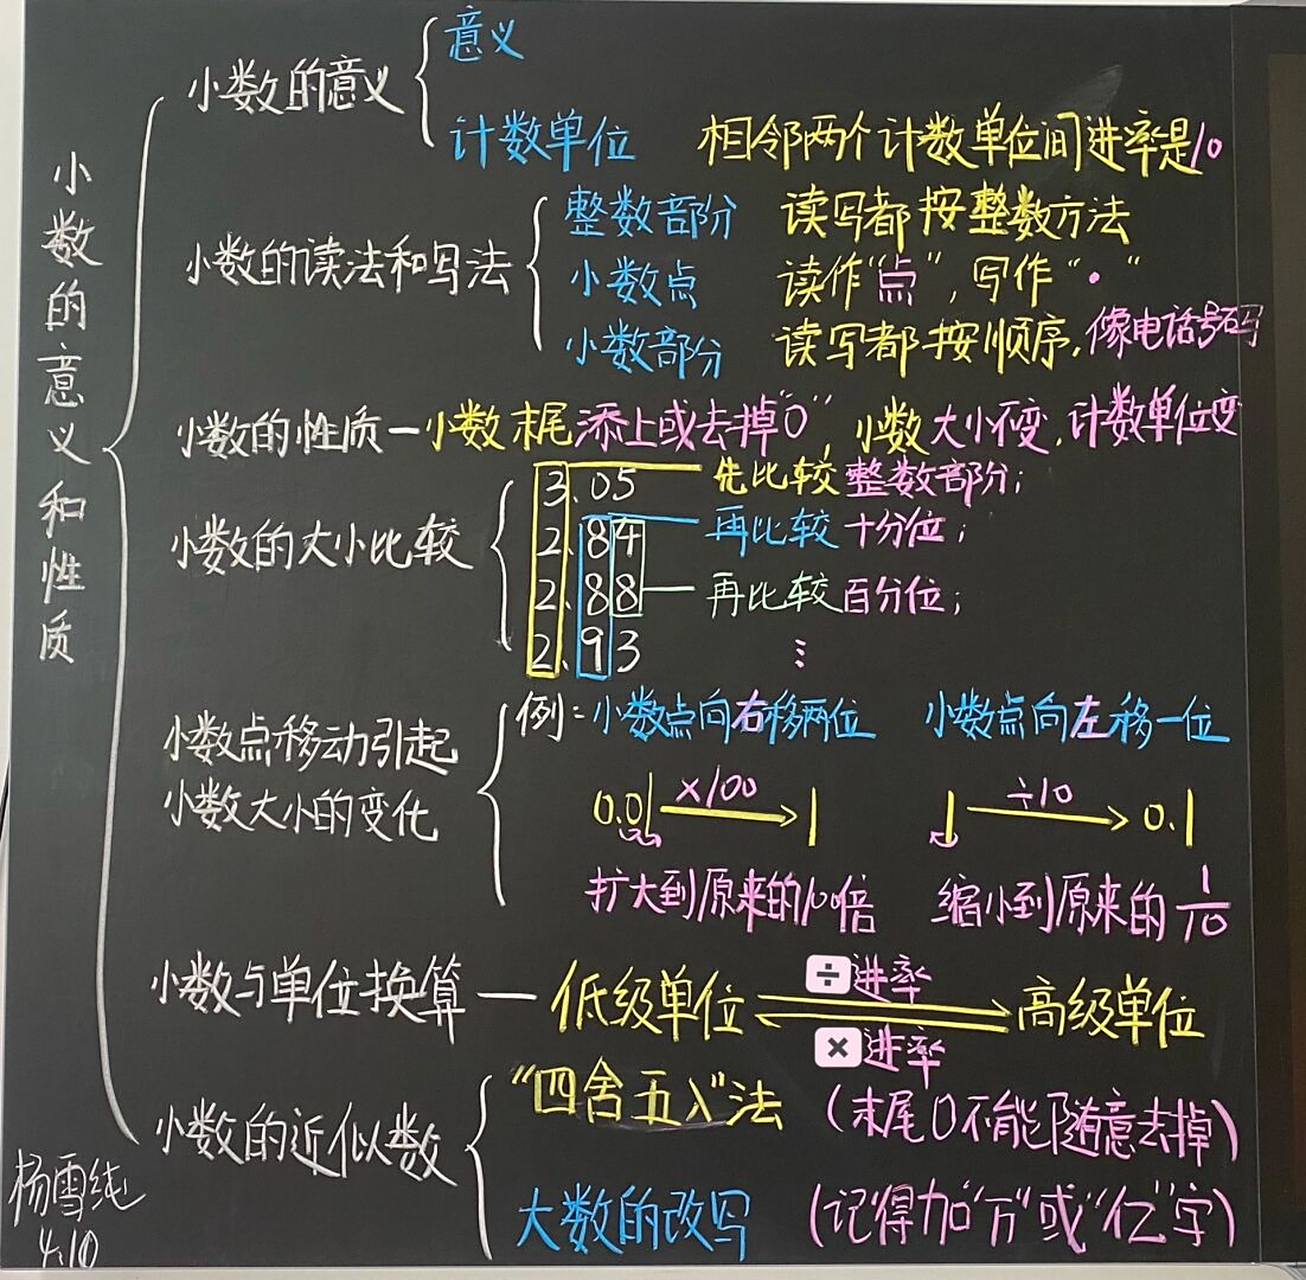 小数的意义和性质
小数的意义
意义
计数单位 相邻两个计数单位间进率是10
小数的读法和写法
整数部分 读写都按整数方法
小数点 读作“点”，写作“·”
小数部分 读写都按顺序，像电话号码
小数的性质—小数末尾添上或去掉“0”，小数大小不变，计数单位变
小数的大小比较
3.05 先比较整数部分；
2.84 再比较十分位；
2.88 再比较百分位；
2.93 ⋮
小数点移动引起
小数大小的变化
例：小数点向右移两位 小数点向左移一位
0.01 ×100 1 1 ÷10 0.1
扩大到原来的100倍 缩小到原来的1/10
小数与单位换算—低级单位 ÷进率 高级单位
×进率
小数的近似数
“四舍五入”法 (末尾0不能随意去掉)
大数的改写 (记得加“万”或“亿”字)
杨雪纯
4.10